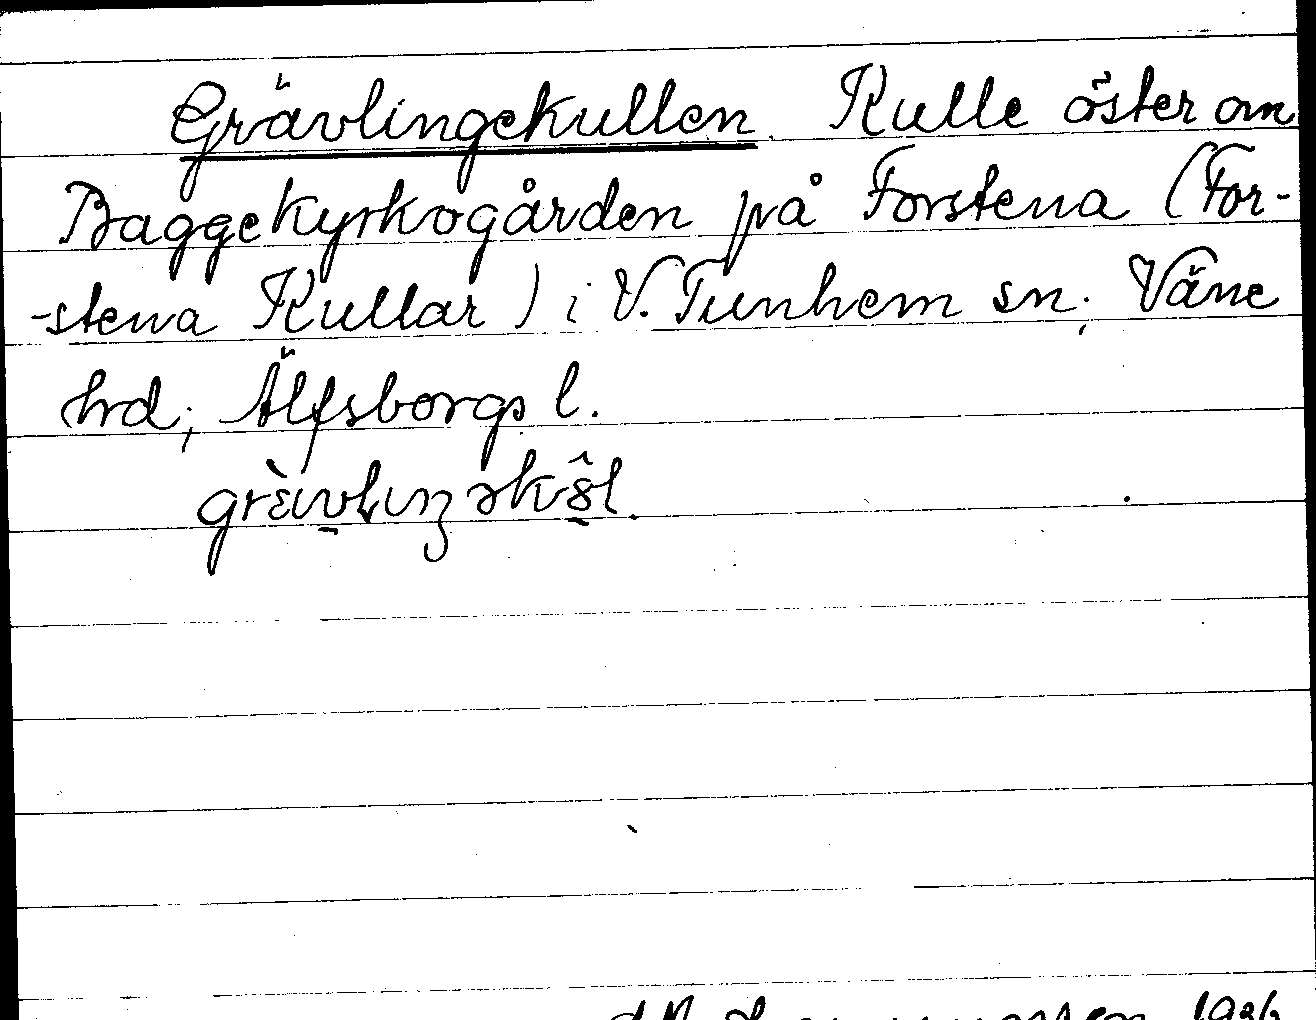 Grävlingekullen. Kulle öster om
Baggekyrkogården på Forstena (For-
-stena Kullar) i V. Tunhem sn; Väne
hrd; Älfsborgs l.